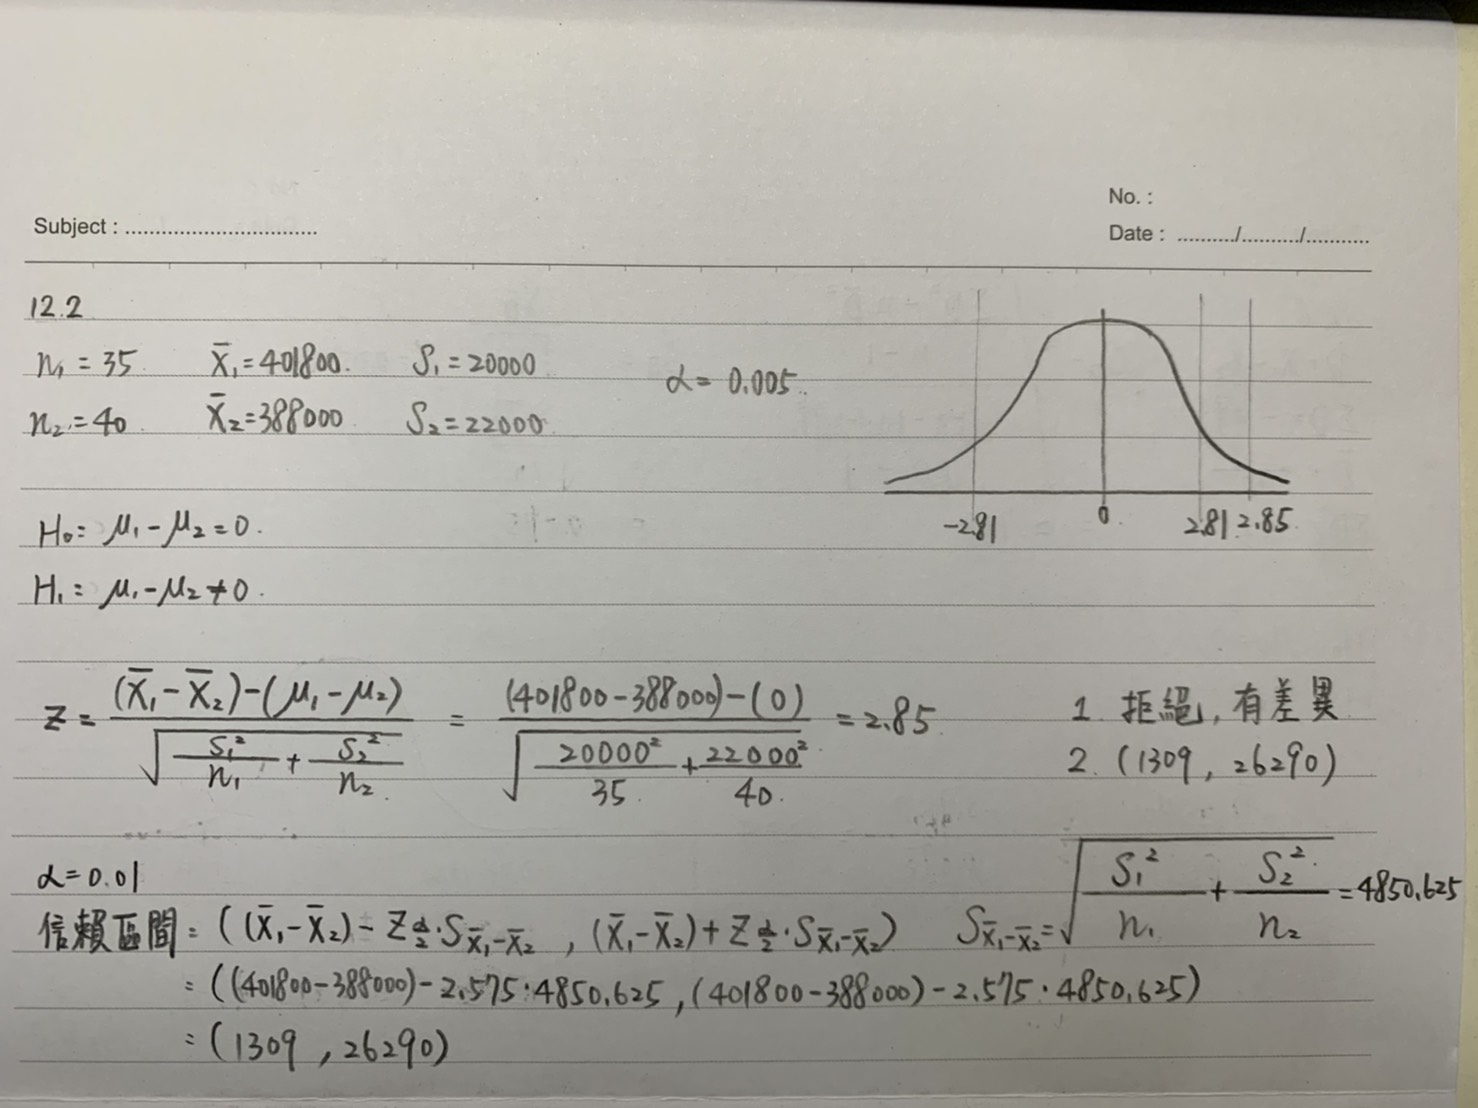 No. :
Subject : ................................
Date : ........../........../...........
12.2
n₁ = 35 X̄₁=401800. S₁=20000 α= 0.005.
n₂=40. X̄₂=388000 S₂=22000
-2.81 0 2.81 2.85
H₀: μ₁-μ₂=0.
H₁: μ₁-μ₂≠0.
Z = ((X̄₁-X̄₂)-(μ₁-μ₂)) / √(S₁²/n₁ + S₂²/n₂) = ((401800-388000)-(0)) / √(20000²/35 + 22000²/40) = 2.85
1. 拒絕, 有差異
2. (1309, 26290)
α=0.01
信賴區間: ((X̄₁-X̄₂)-Z α/2·S X̄₁-X̄₂, (X̄₁-X̄₂)+Z α/2·S X̄₁-X̄₂) S X̄₁-X̄₂=√(S₁²/n₁ + S₂²/n₂) = 4850.625
= ((401800-388000)-2.575·4850.625, (401800-388000)-2.575·4850.625)
= (1309, 26290)